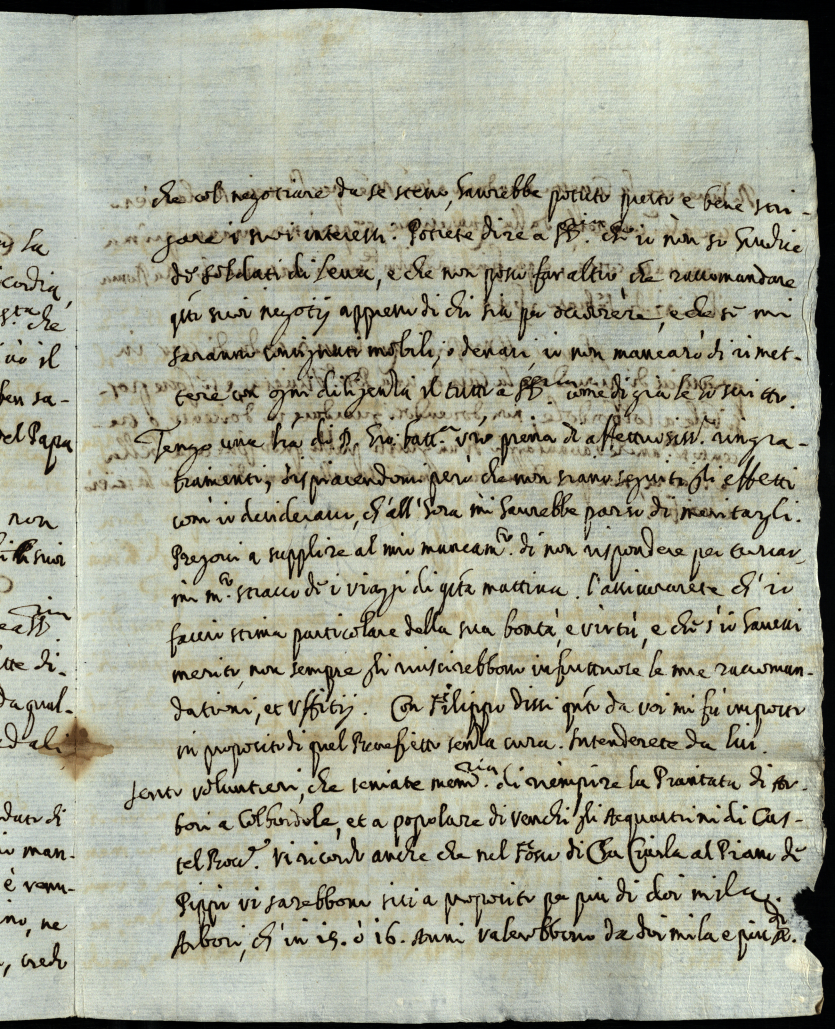 la
cordia,
sta che
iò il
ben sa-
del Papa
non
suoi
tte di-
da qual-
ed ali
dati di
man-
è venu-
ino, ne
, credo
che col negotiare da se stesso, havrebbe potuto presto e bene stri-
gare i suoi interessi. Potrete dire a che io non so Giudice
de soldati di leva, e che non posso far altro che raccomandare
q.ti suoi negotij appresso di chi sia per occorrere, e che se mi
saranno consignati mobili, o denari, io non mancarò di rimet-
tere con ogni diligenza il tutto a come di già le ho scritto.
Tengo una l.ra di D. Gio: batt.a piena di affettuosiss.i ringra-
tiamenti, dispiacendomi però che non siano seguiti gli effetti
com'io desideravo, ch'all'hora mi havrebbe parso di meritargli.
Pregovi a supplire al mio mancam.to di non rispondere per
mi m.to stracco de i viaggi di q.sta mattina. l'assicurarete ch'io
faccio stima particolare della sua bontà, e virtù, e che s'io havessi
merito, non sempre gli riuscirebbono infruttuose le mie raccoman-
dationi, et uffitij. Con Filippo dissi q.to da voi mi fù imposto
in proposito di quel Benefitio senza cura. Intenderete da lui.
Sento volontieri, che teniate mem.ria di riempire la Piantata di Ar-
bori a Colbordole, et a popolare di venchi gli Acquastrini di Cas-
tel Vi ricordo anche che nel Fosso di Ca al Piano de
Pippo vi sarebbono siti a proposito per più di doi mila
Arbori, ch'in 15. ò 16. Anni valerebbono da doi mila e più